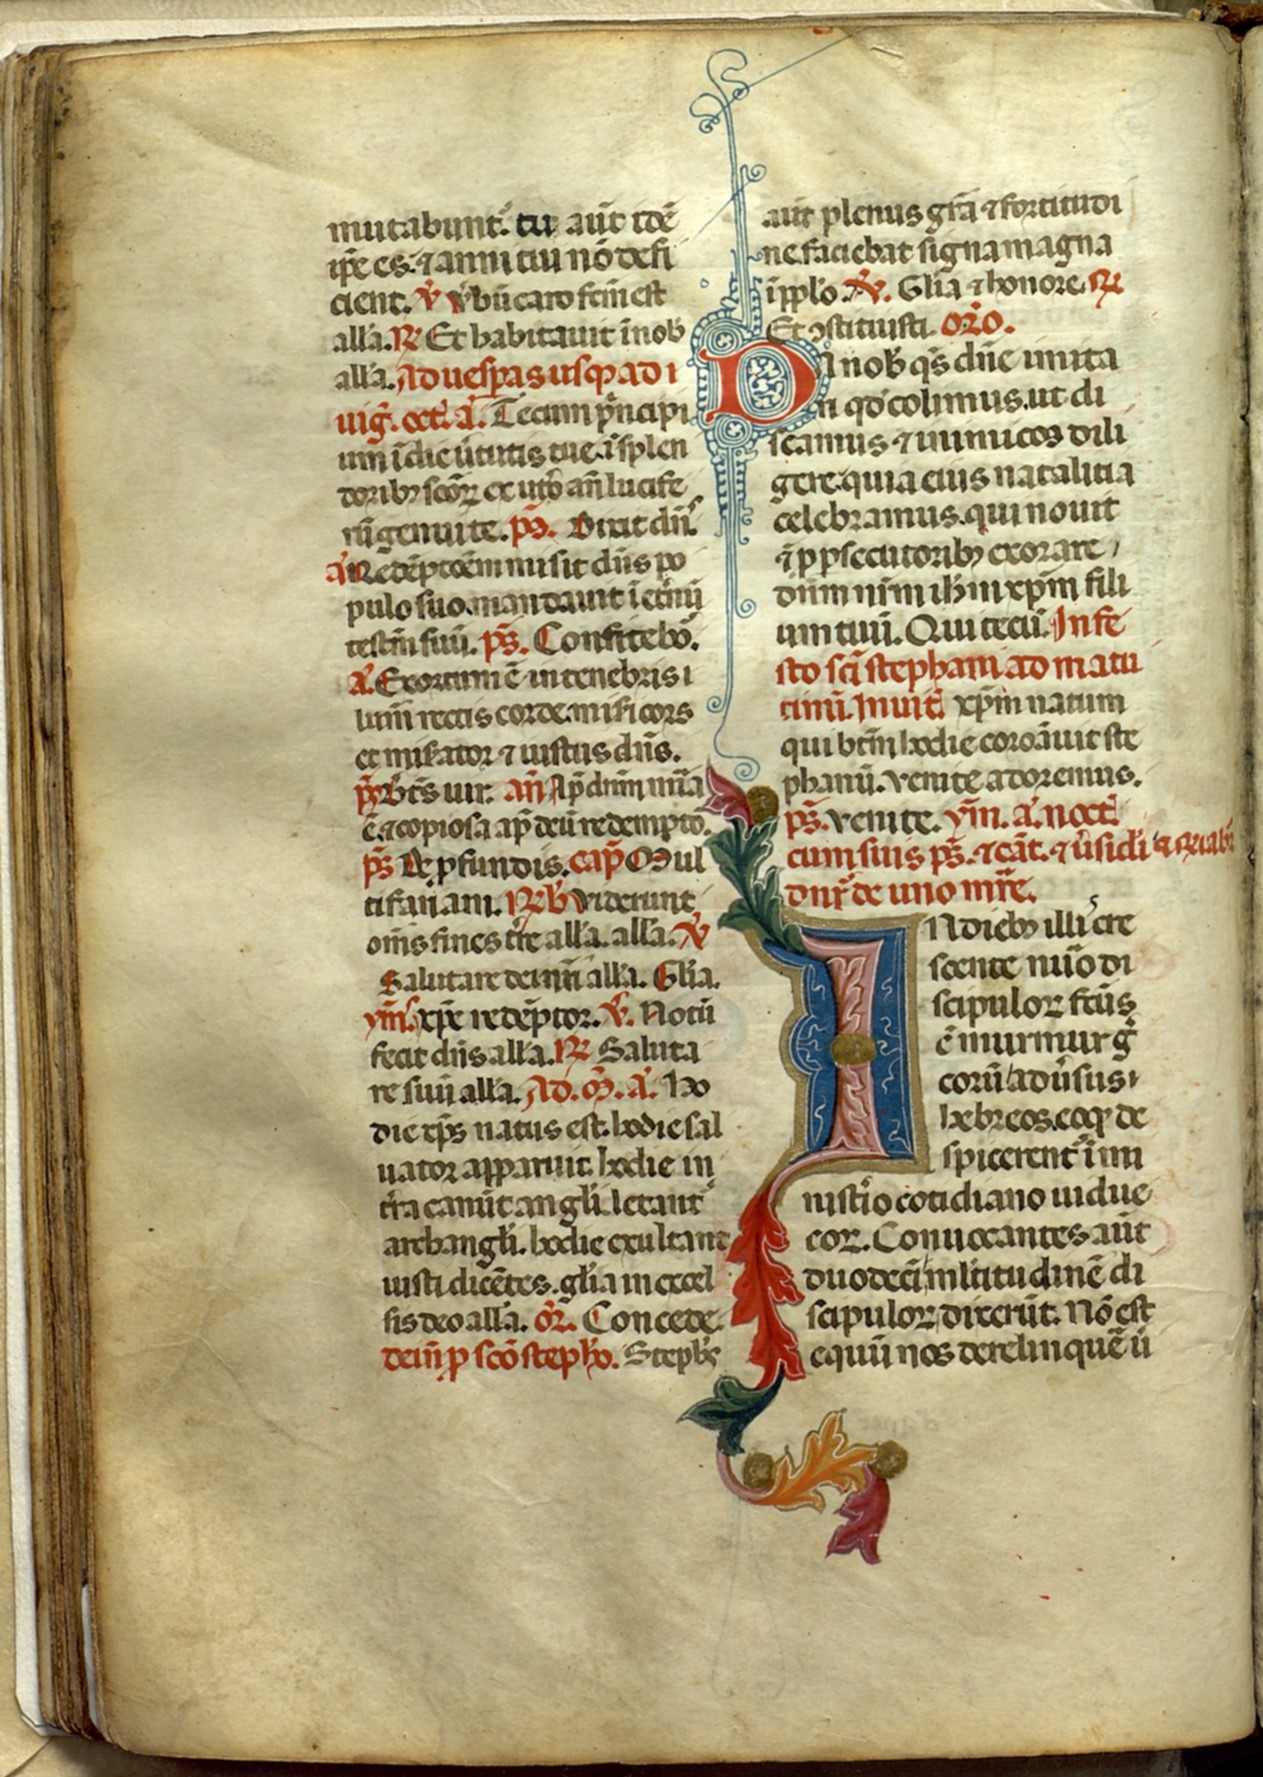 mutabunt̾. tu aūt idē
ip̄e es. ⁊ anni tui nō defi
cient. ℣ v̾bū caro fc̄m est
all̾a. ℞ Et habitauit ī nob̾
all̾a. Ad uesp̄as usq; ad i
uig̾. oct̾. a̾. Tecum p̾ncipi
um ī die ūtutis tue. ī splen
doribꝫ sc̄oꝝ ex ut̾o an̄ lucife
rū genui te. ps̄. Dixit dn̄s.
a̾ Redēptōem misit dn̄s po
pulo suo. mandauit ī et̾nū
testm̄ suū. ps̄. Confitebo̾.
a̾. Exortum ē in tenebris
lum̄ rectis corde. mis̾icors
et mis̾ator ⁊ iustus dn̄s.
ps̄ Bt̄s uir. an̄ Ap̄ dn̄m mīa
ē. ⁊ copiosa ap̄ deū redempto.
ps̄ De ꝓfundis. cap̄ Mul
tifariam. ℞ b̾ Viderunt
om̄s fines t̾re all̾a. all̾a. ℣
Salutare dei nr̄i all̾a. Gl̾ia.
ym̄. xp̄e redēptor. ℣. Notū
fecit dn̄s all̾a. ℞ Saluta
re suū all̾a. Ad. m̄. a̾. Ho
die xp̄s natus est. hodie sal
uator apparuit. hodie in
t̾ra canūt angl̾i. letant̾
archangl̾i. hodie exultant
iusti dicētes. gl̾ia in excel
sis deo all̾a. or̄. Concede.
dein̄ ꝑ sc̄o steph̾o. Steph̾s
aūt plenus gr̄a ⁊ fortitudi
ne. faciebat signa magna
ī ppl̾o. ℣. Gl̾ia ⁊ honore. ℞
Et ꝯstituisti. or̄o.
Da nob̾ qs̄ dn̄e imita
ri qd̾ colimus. ut di
scamus ⁊ inimicos dili
gere. quia eius natalitia
celebramus. qui nouit
ī ꝑsecutoribꝫ exorare
dn̄m nr̄m ih̄m xp̄m fili
um tuū. Qui tecū. In fe
sto sc̄i stephani ad matu
tinū. Inuit̾. xp̄m natum
qui bt̄m hodie coronāuit ste
phanū. venite adoremus.
ps̄. venite. ym̄. a̾. noct̾.
cum suis ps̄. ⁊ cāt. ⁊ ūsicl̾i
dnr̾ de uno mr̄e.
In diebꝫ illi̾ cre
scente nūo di
scipuloꝝ fc̄us
ē murmur g̾
coꝝ adūsus
hebreos. eo qꝫ de
spicerent̾ ī mi
nist̾io cotidiano uidue
eoꝝ. Conuocantes aūt
duodeci ml̾titudinē di
scipuloꝝ dixerūt. Nō est
equū nos derelinquē ū